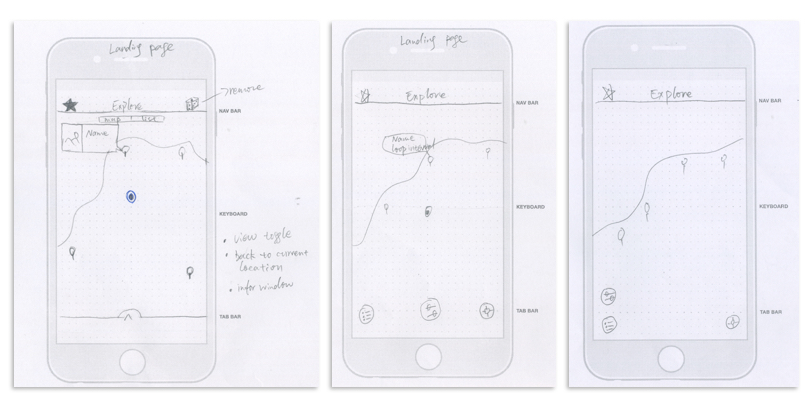 Landing page
remove
Explore
NAV BAR
map list
Name
KEYBOARD
• view toggle
• back to current
location
• infor window
TAB BAR
Landing page
Explore
NAV BAR
Name
KEYBOARD
TAB BAR
Explore
NAV BAR
KEYBOARD
TAB BAR